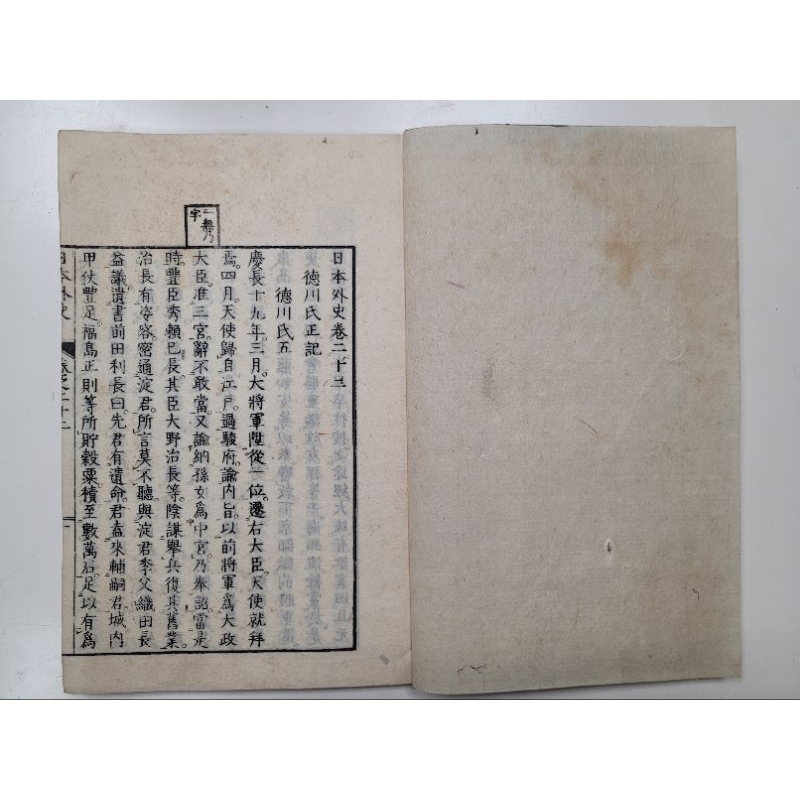 日本外史卷二十二
德川氏正記
德川氏五
慶長十九年三月大將軍陞從一位遷右大臣天使就拜
焉四月天使歸自江戶過駿府諭內旨以前將軍爲大政
大臣准三宮辭不敢當又諭納孫女爲中宮乃奉詔當是
時豐臣秀賴已長其臣大野治長等陰謀舉兵復其舊業
治長有姿容密通淀君所言莫不聽與淀君季父織田長
益議遺書前田利長曰先君有遺命君盍來輔嗣君城內
甲仗豐足福島正則等所貯穀粟積至數萬石足以有爲
一無乃
字
日本外史
卷之二十二